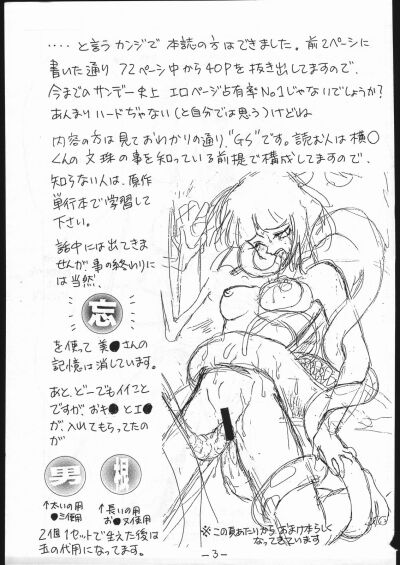 ‥‥と言うカンジで本誌の方はできました。前2ページに
書いた通り 72ページ中から40Pを抜き出してますので、
今までのサンデー史上 エロページ占有率No1じゃないでしょうか?
あんまりハードぢゃない(と自分では思う)けどね
内容の方は見ておわかりの通り、"GS"です。読お人は横○
くんの文珠の事を知っている前提で構成してますので、
知らない人は、原作
単行本で学習して
下さい。
話中には出てきま
せんが 事の終わりに
は当然、
忘
を使って 美●さんの
記憶は消しています。
あと、どーでもイイこと
ですが おキ●とエ●
が、入れてもらってたの
が
男 根
↑太いの用
●ミ使用
↑長いの用
お●ヌ使用
2個1セットで生えた後は
玉の代用になってます。
※この頁あたりからおまけ本らしく
なってきています
-3-